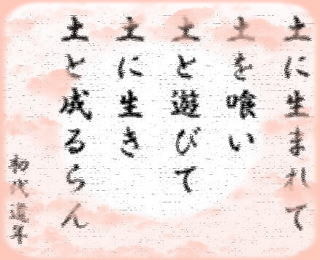 土に生まれて
土を喰い
土と遊びて
土に生き
土と成るらん
初代道年